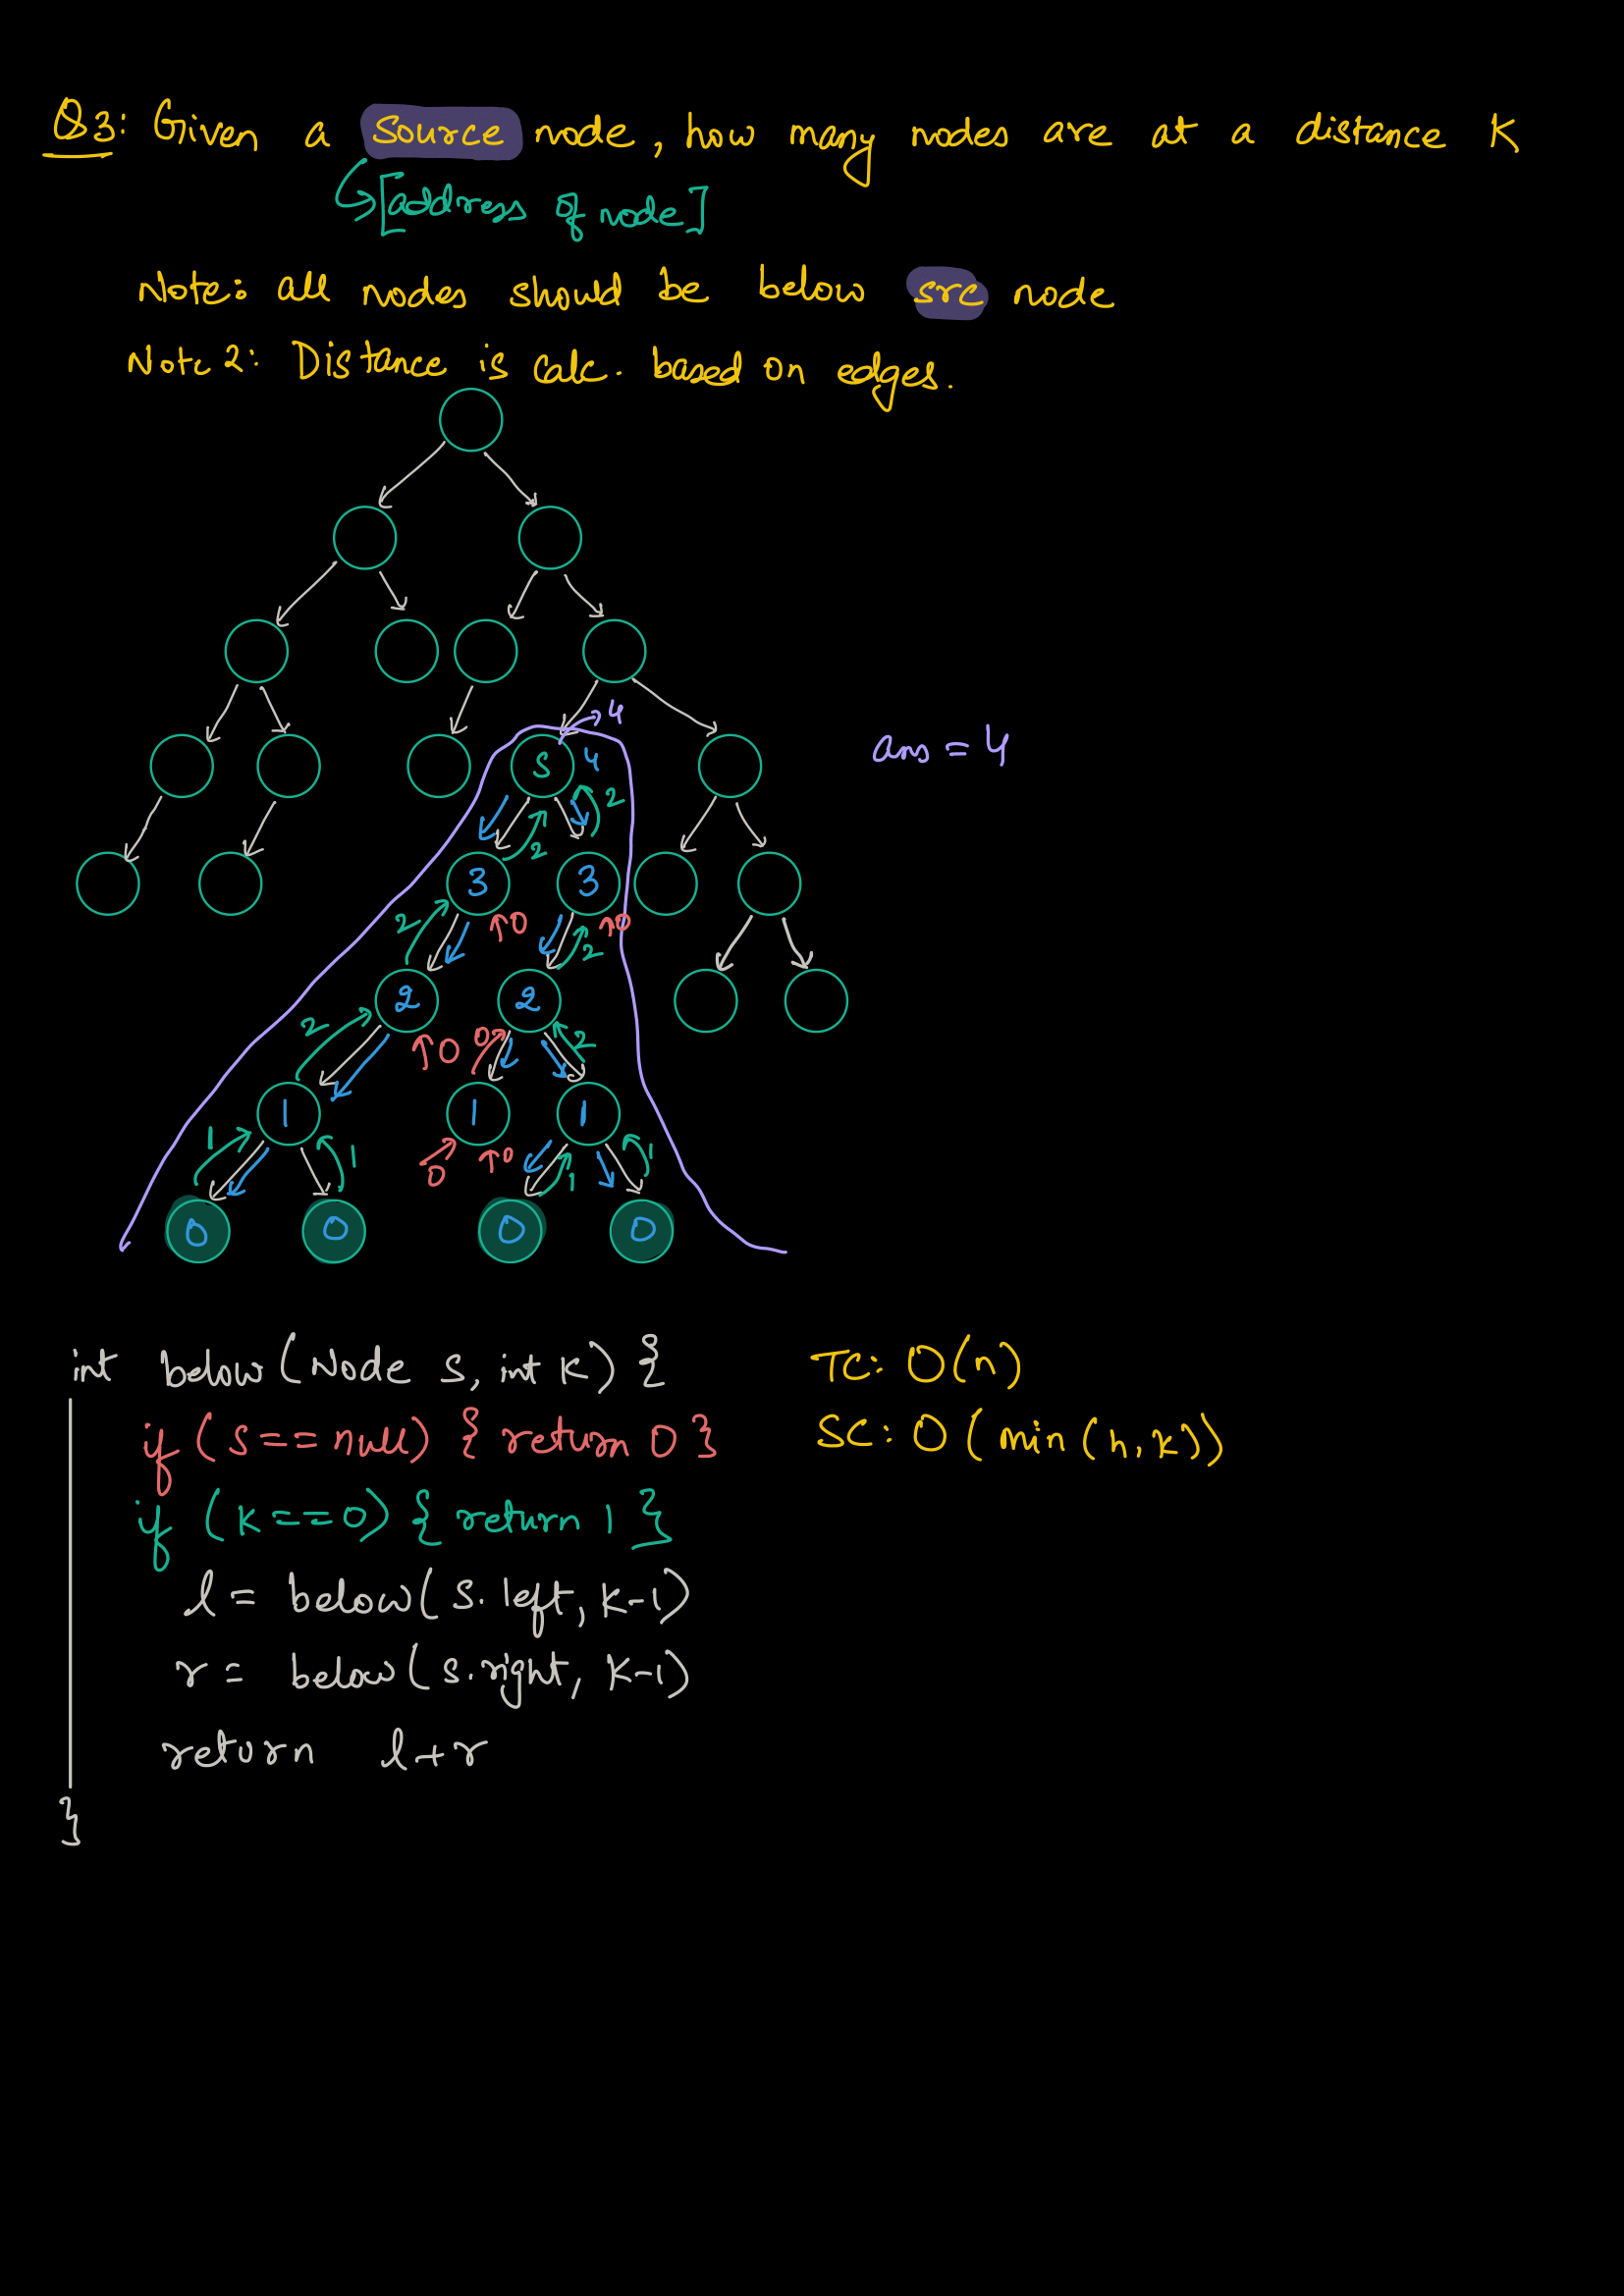 Q3: Given a Source node, how many nodes are at a distance K
[address of node]
Note: all nodes should be below src node
Note 2: Distance is calc. based on edges.
4
S 4
ans = 4
2 2
3 3
2 ↑0 2 ↑0
2 2
2 ↑0 0 2
1 1 1
1 1 0 ↑0 1 1
0 0 0 0
int below(Node S, int K) { TC: O(n)
if (S == null) { return 0 } SC: O(min(h, k))
if (K == 0) { return 1 }
l = below(S.left, K-1)
r = below(S.right, K-1)
return l+r
}